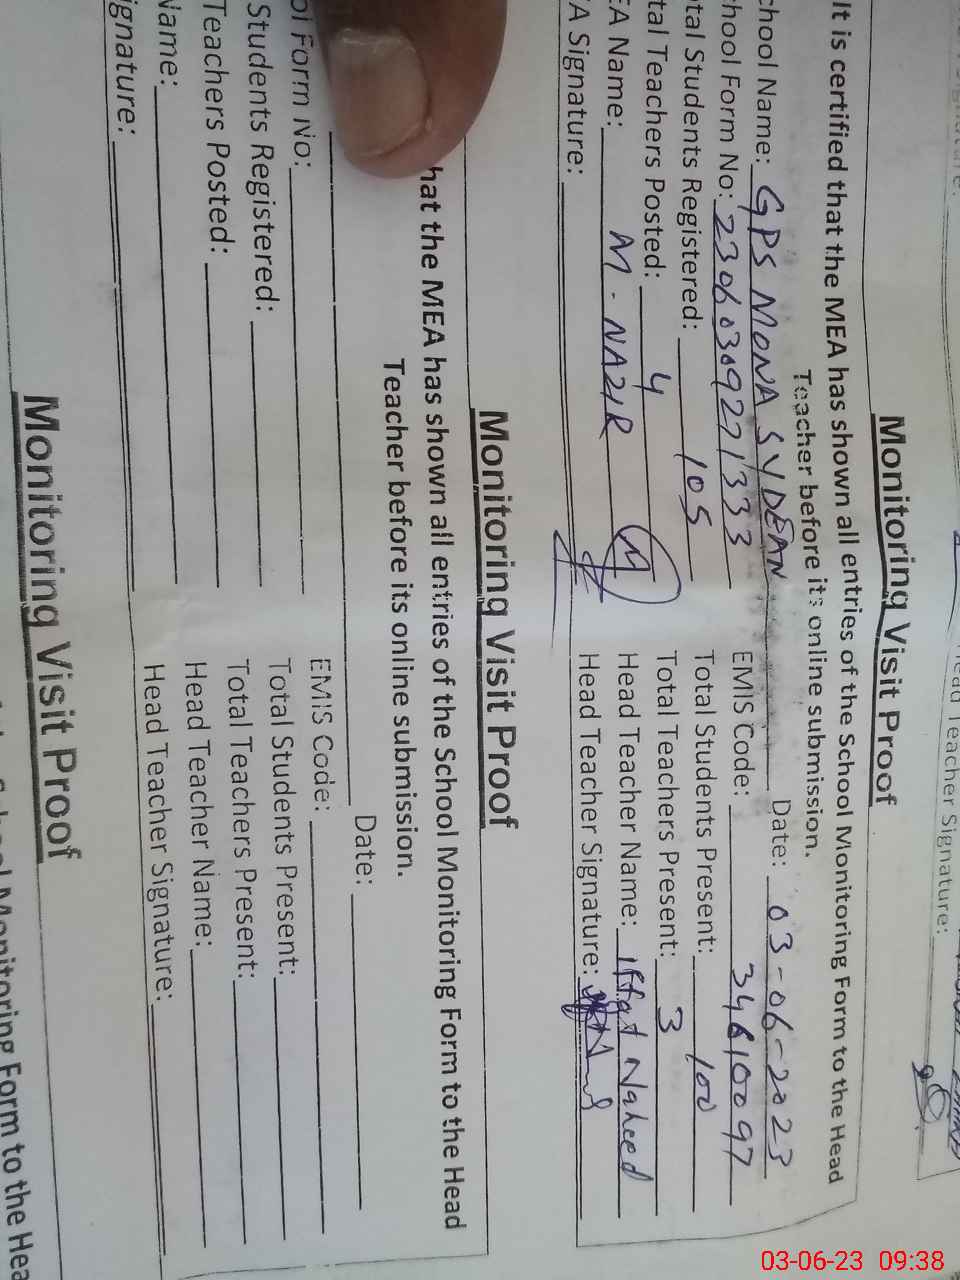 Head Teacher Signature:
Monitoring Visit Proof
It is certified that the MEA has shown all entries of the School Monitoring Form to the Head
Teacher before its online submission.
chool Name: GPS MONA SYDEAN Date: 03-06-2023
chool Form No: 23060309271333 EMIS Code: 34610097
tal Students Registered: 105 Total Students Present: 100
tal Teachers Posted: 4 Total Teachers Present: 3
EA Name: M. NAZIR Head Teacher Name: Iffat Naheed
A Signature: Head Teacher Signature:
Monitoring Visit Proof
hat the MEA has shown all entries of the School Monitoring Form to the Head
Teacher before its online submission.
Date:
ol Form No: EMIS Code:
Students Registered: Total Students Present:
Teachers Posted: Total Teachers Present:
Name: Head Teacher Name:
ignature: Head Teacher Signature:
Monitoring Visit Proof
School Monitoring Form to the Hea
03-06-23 09:38